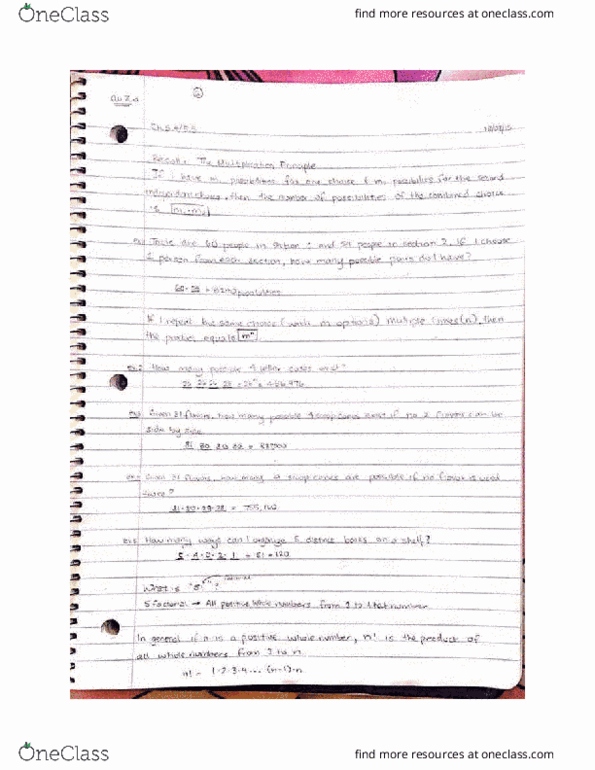 OneClass
find more resources at oneclass.com
Recall: The Multiplication Principle
If I have m, possibilities for one choice & m, possibilities for the second
independent choice, then the number of possibilities of the combined choice
is m₁·m₂
There are 60 people in section 1 and 54 people in section 2. If I choose
1 person from each section, how many possible pairs do I have?
possibilities
If I repeat the same choice (with m options) multiple times(n), then
the product equals mⁿ
How many possible 4 letter codes exist?
26 26 26 26 = 26⁴ = 456,976
Given 31 flavors, how many possible 4 scoop cones exist if no 2 flavors can be
side by side
Given 31 flavors, how many 4 scoop cones are possible if no flavor is used
twice?
31·30·29·28 = 755,160
How many ways can I organize 5 distinct books on a shelf?
5·4·3·2·1 = 5! = 120
What is "5!"?
5 factorial → All positive whole numbers from 1 to that number
In general if n is a positive whole number, n! is the product of
all whole numbers from 1 to n.
n! = 1·2·3·4... (n-1)·n
OneClass
find more resources at oneclass.com